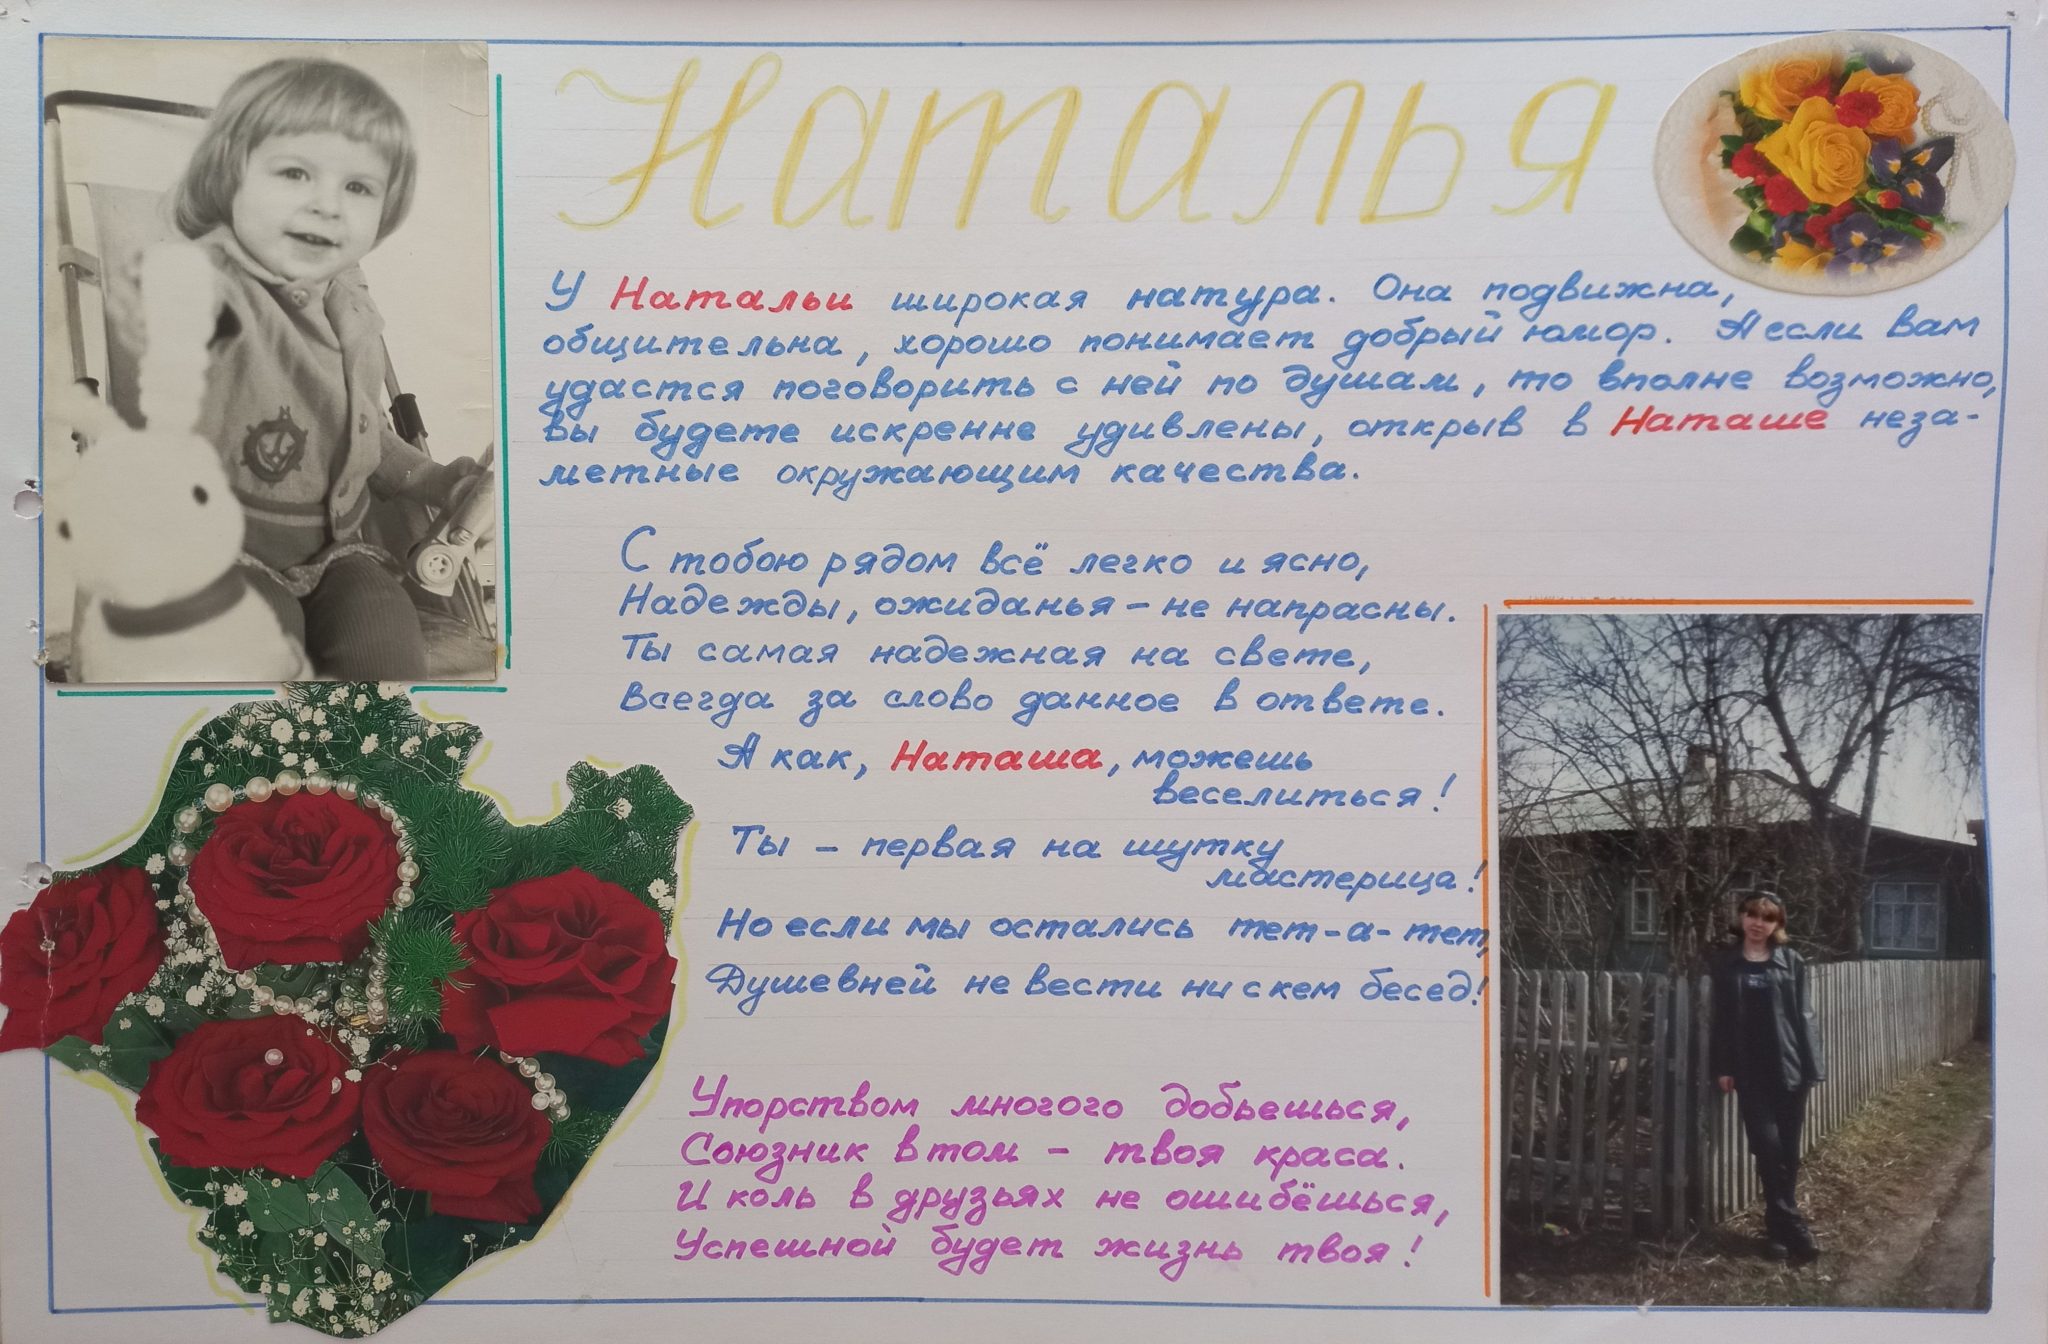 Наталья
У Натальи широкая натура. Она подвижна,
общительна, хорошо понимает добрый юмор. А если вам
удастся поговорить с ней по душам, то вполне возможно,
вы будете искренне удивлены, открыв в Наташе неза-
метные окружающим качества.
С тобою рядом всё легко и ясно,
Надежды, ожиданья – не напрасны.
Ты самая надежная на свете,
Всегда за слово данное в ответе.
А как, Наташа, можешь
веселиться!
Ты – первая на шутку
мастерица!
Но если мы остались тет-а-тет,
Душевней не вести ни с кем бесед!
Упорством многого добьешься,
Союзник в том – твоя краса.
И коль в друзьях не ошибёшься,
Успешной будет жизнь твоя!